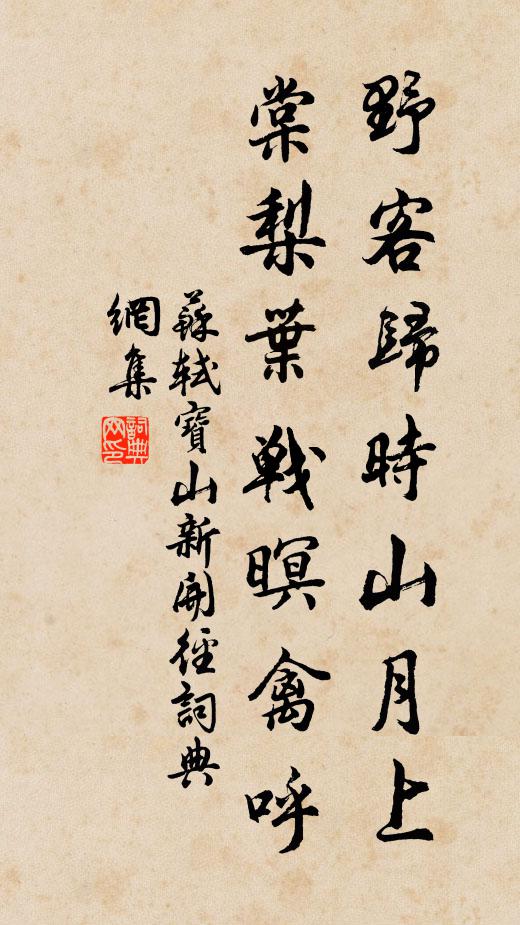 野客歸時山月上
棠梨葉戰暝禽呼
蘇軾寶山新開徑詞典
網集
詞典
网印